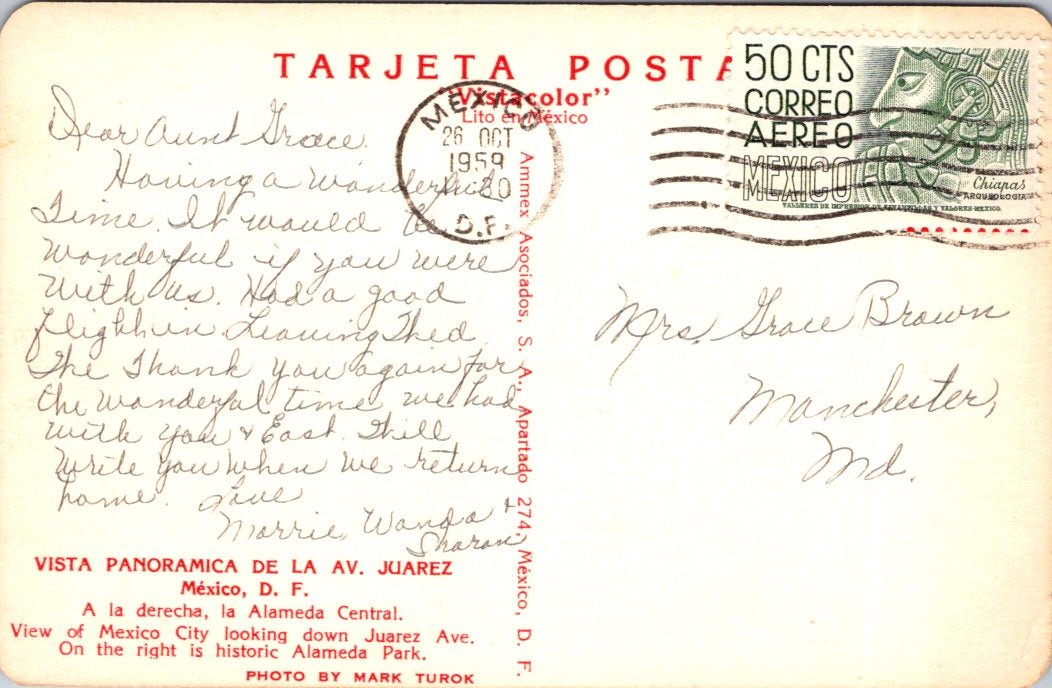 TARJETA POSTA
"Vistacolor"
Lito en México
50 CTS
CORREO
AEREO
MEXICO
Chiapas
ARQUEOLOGIA
TALLERES DE IMPRESION DE ESTAMPILLAS Y VALORES-MEXICO.
MEXICO
26 OCT
1959
D.F.
Dear Aunt Grace,
Having a wonderful
Time. It would be
wonderful if you were
with us. Had a good
Leaving
The Thank you again for
the wonderful time we had
with you & East. Will
write you when we return
home. Love
Morrie, Wanda &
Sharon
Mrs. Grace Brown
Manchester,
Md.
Ammex Asociados, S. A., Apartado 274, México, D. F.
VISTA PANORAMICA DE LA AV. JUAREZ
México, D. F.
A la derecha, la Alameda Central.
View of Mexico City looking down Juarez Ave.
On the right is historic Alameda Park.
PHOTO BY MARK TUROK